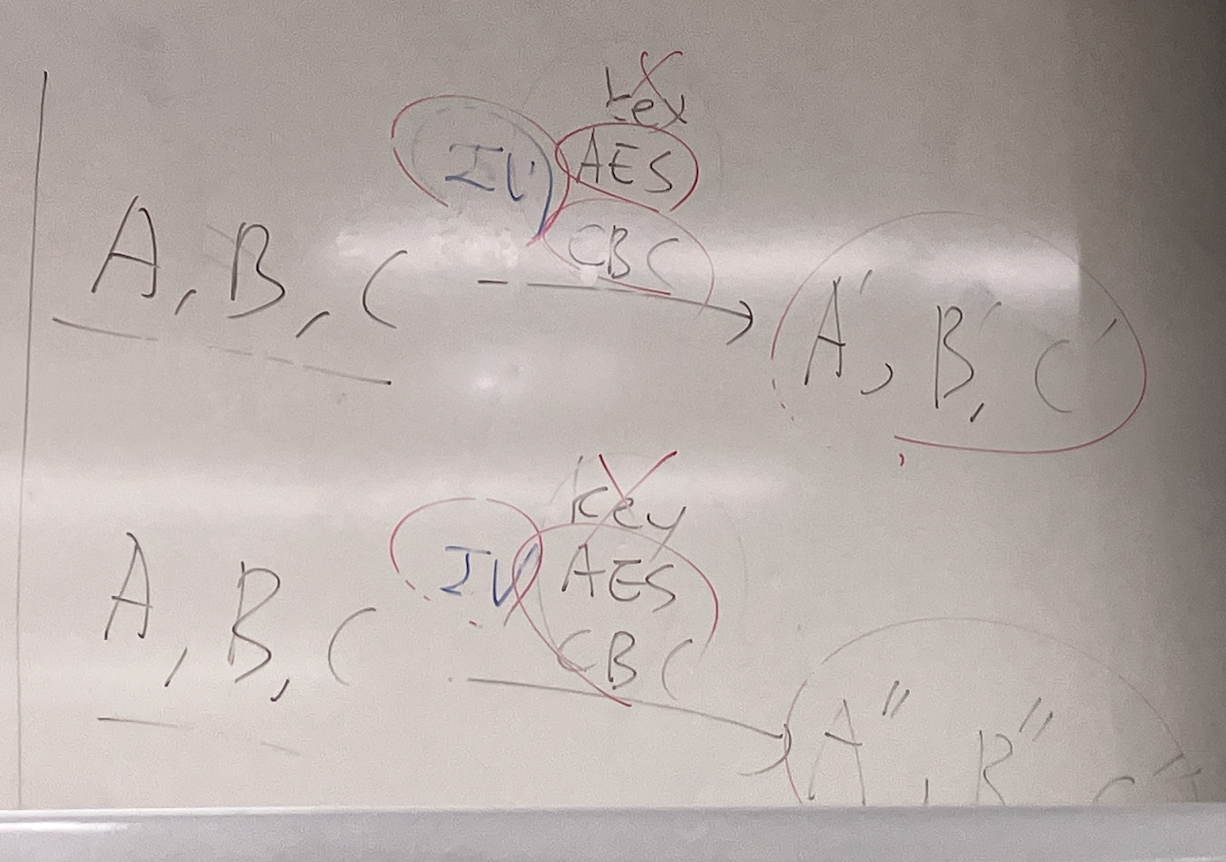 key
IV AES
CBC
A, B, C
A', B', C'
key
IV AES
CBC
A, B, C
A'', B''